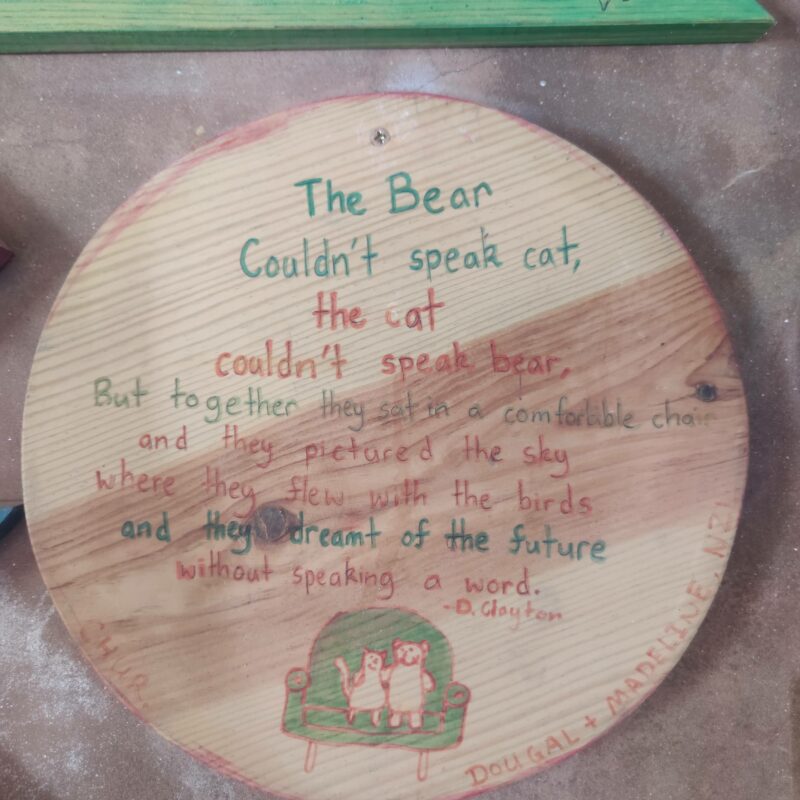 The Bear
Couldn't speak cat,
the cat
couldn't speak bear,
But together they sat in a comfortible chair
and they pictured the sky
where they flew with the birds
and they dreamt of the future
without speaking a word.
-D. Clayton
CHUR.
DOUGAL + MADELINE, NZ